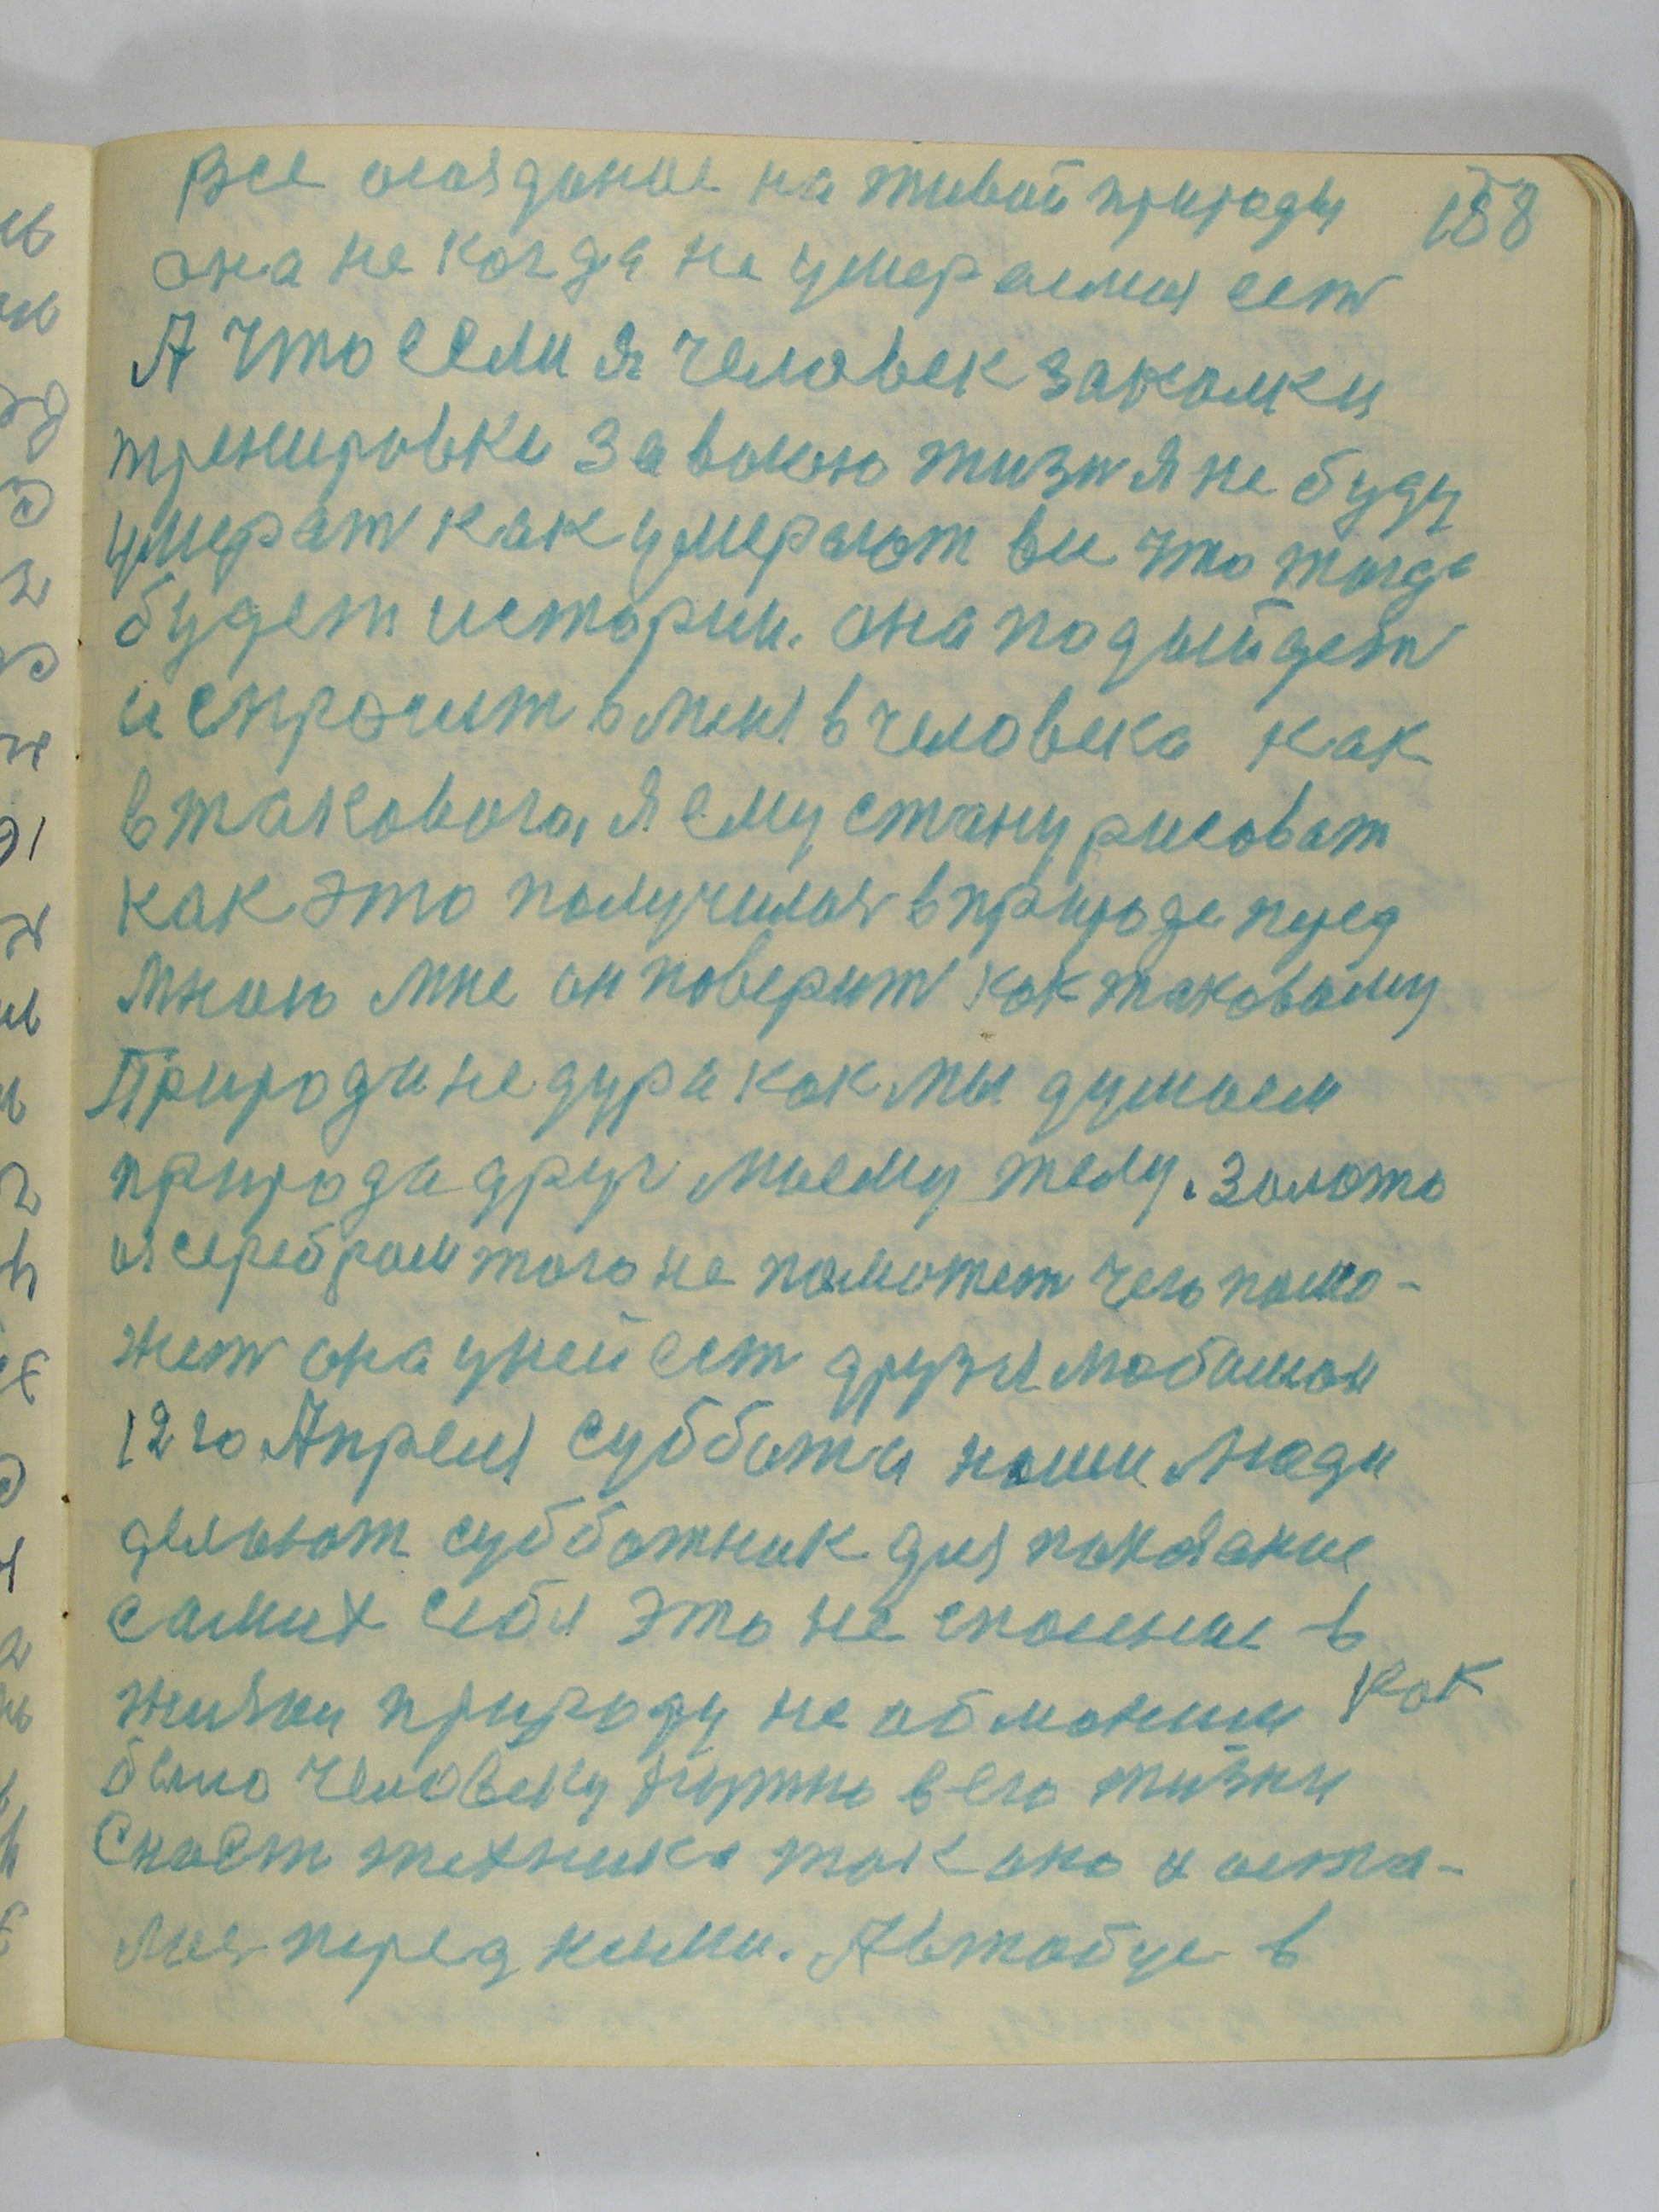 158
Все оседание на живой природы
она не когда не умераемая ест
А что если я человек закалки
тренировки за вою жизн я не буду
умерат как умерают все что тогда
будет истории. она подыйдет
и спросит в меня в человека как
в таковога, я ему стану рисоват
как это получилася в природе перед
мною мне он поверит как таковому
Природа не дура как мы думаем
природа друг моему телу. Золото
я серебром того не поможет чего помо-
жет она у ней ест друзя
12 го Апреля суббота наши люди
делают субботник для показание
самих себя это не спасение в
жизни природу не обманиш как
было человеку нужно в его жизни
снаст техника так оно и оста-
лися перед ними. Автобус в